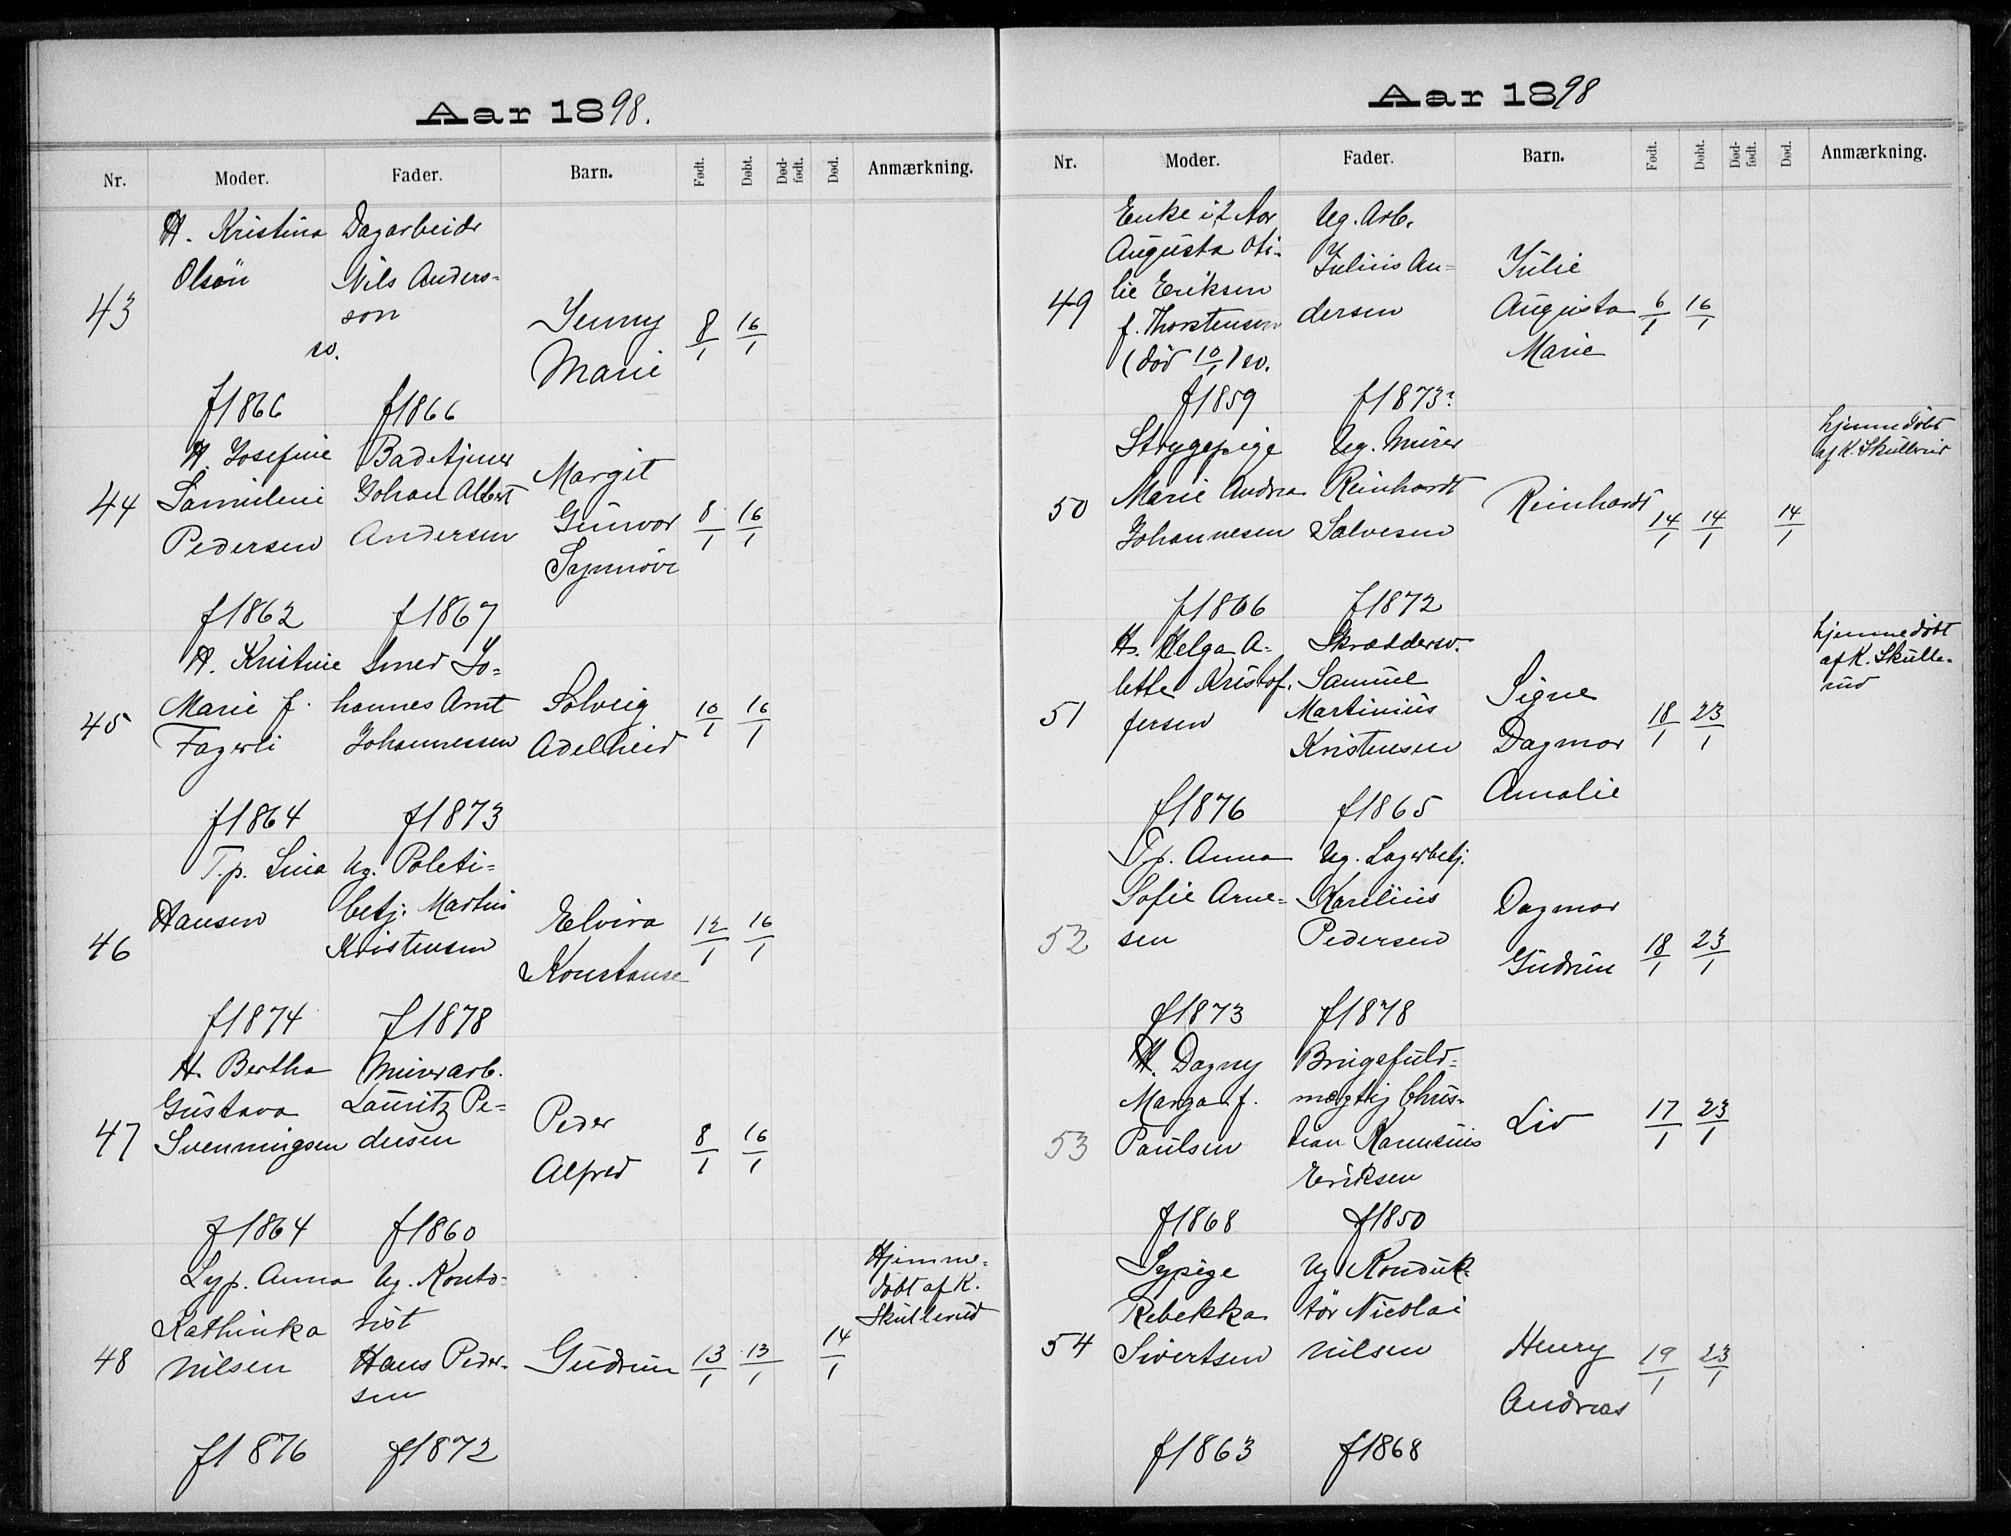 Aar 1898.
Nr. Moder. Fader. Barn. Født. Døbt. Død-født. Død. Anmærkning.
43
H. Kristina
Olsön
sv.
f1866
Dagarbeidr
Nils Anders-
son
f1866
Jenny
Marie
8/1 16/1
44
H. Josefine
Samuline
Pedersen
f1862
Badetjener
Johan Albert
Andersen
f1867
Margit
Gunvor
Synnöve
8/1 16/1
45
H. Kristine
Marie f.
Fagerli
f1864
Smed Jo-
hannes Arnt
Johannessen
f1873
Solveig
Adelheid
10/1 16/1
46
T.p. Lina
Hansen
f1874
Ug. Politi-
betj. Martin
Kristensen
f1878
Elvira
Konstanse
12/1 16/1
47
H. Bertha
Gustava
Svenningsen
f1864
Murerarb.
Lauritz Pe-
dersen
f1860
Peder
Alfred
8/1 16/1
48
Syp. Anna
Kathinka
Nilsen
f1876
Ug. Konto-
rist
Hans Peder-
sen
f1872
Gudrun
13/1 13/1 14/1
Hjemme-
döbt af K.
Skullerud
Aar 1898
Nr. Moder. Fader. Barn. Født. Døbt. Død-født. Død. Anmærkning.
49
Enke i 2 Aar
Augusta Oti-
lie Eriksen
f. Thorstensen
(död 10/1) sv.
f1859
Ug. Arb.
Julius An-
dersen
f1873?
Julie
Augusta
Marie
6/1 16/1
50
Strygepige
Marie Andrea
Johannesen
f1866
Ug. Murer
Reinhardt
Salvesen
f1872
Reinhardt
14/1 14/1 14/1
hjemmedöbt
af K. Skullerud
51
H. Helga A-
lette Kristof-
fersen
f1876
Skræddersv.
Samuel
Martinius
Kristensen
f1865
Signe
Dagmar
Amalie
18/1 23/1
hjemmedöbt
af K. Skulle-
rud
52
T.p. Anna
Sofie Arne-
sen
f1873
Ug. Lagerbetj.
Karelius
Pedersen
f1878
Dagmar
Gudrun
18/1 23/1
53
H. Dagny
Marga. f.
Paulsen
f1868
Brugsfuld-
mægtig Chris-
tian Rasmus
Eriksen
f1850
Liv
17/1 23/1
54
Sypige
Rebekka
Sivertsen
f1863
Ug Konduk-
tör Nicolai
Nilsen
f1868
Henry
Andreas
19/1 23/1